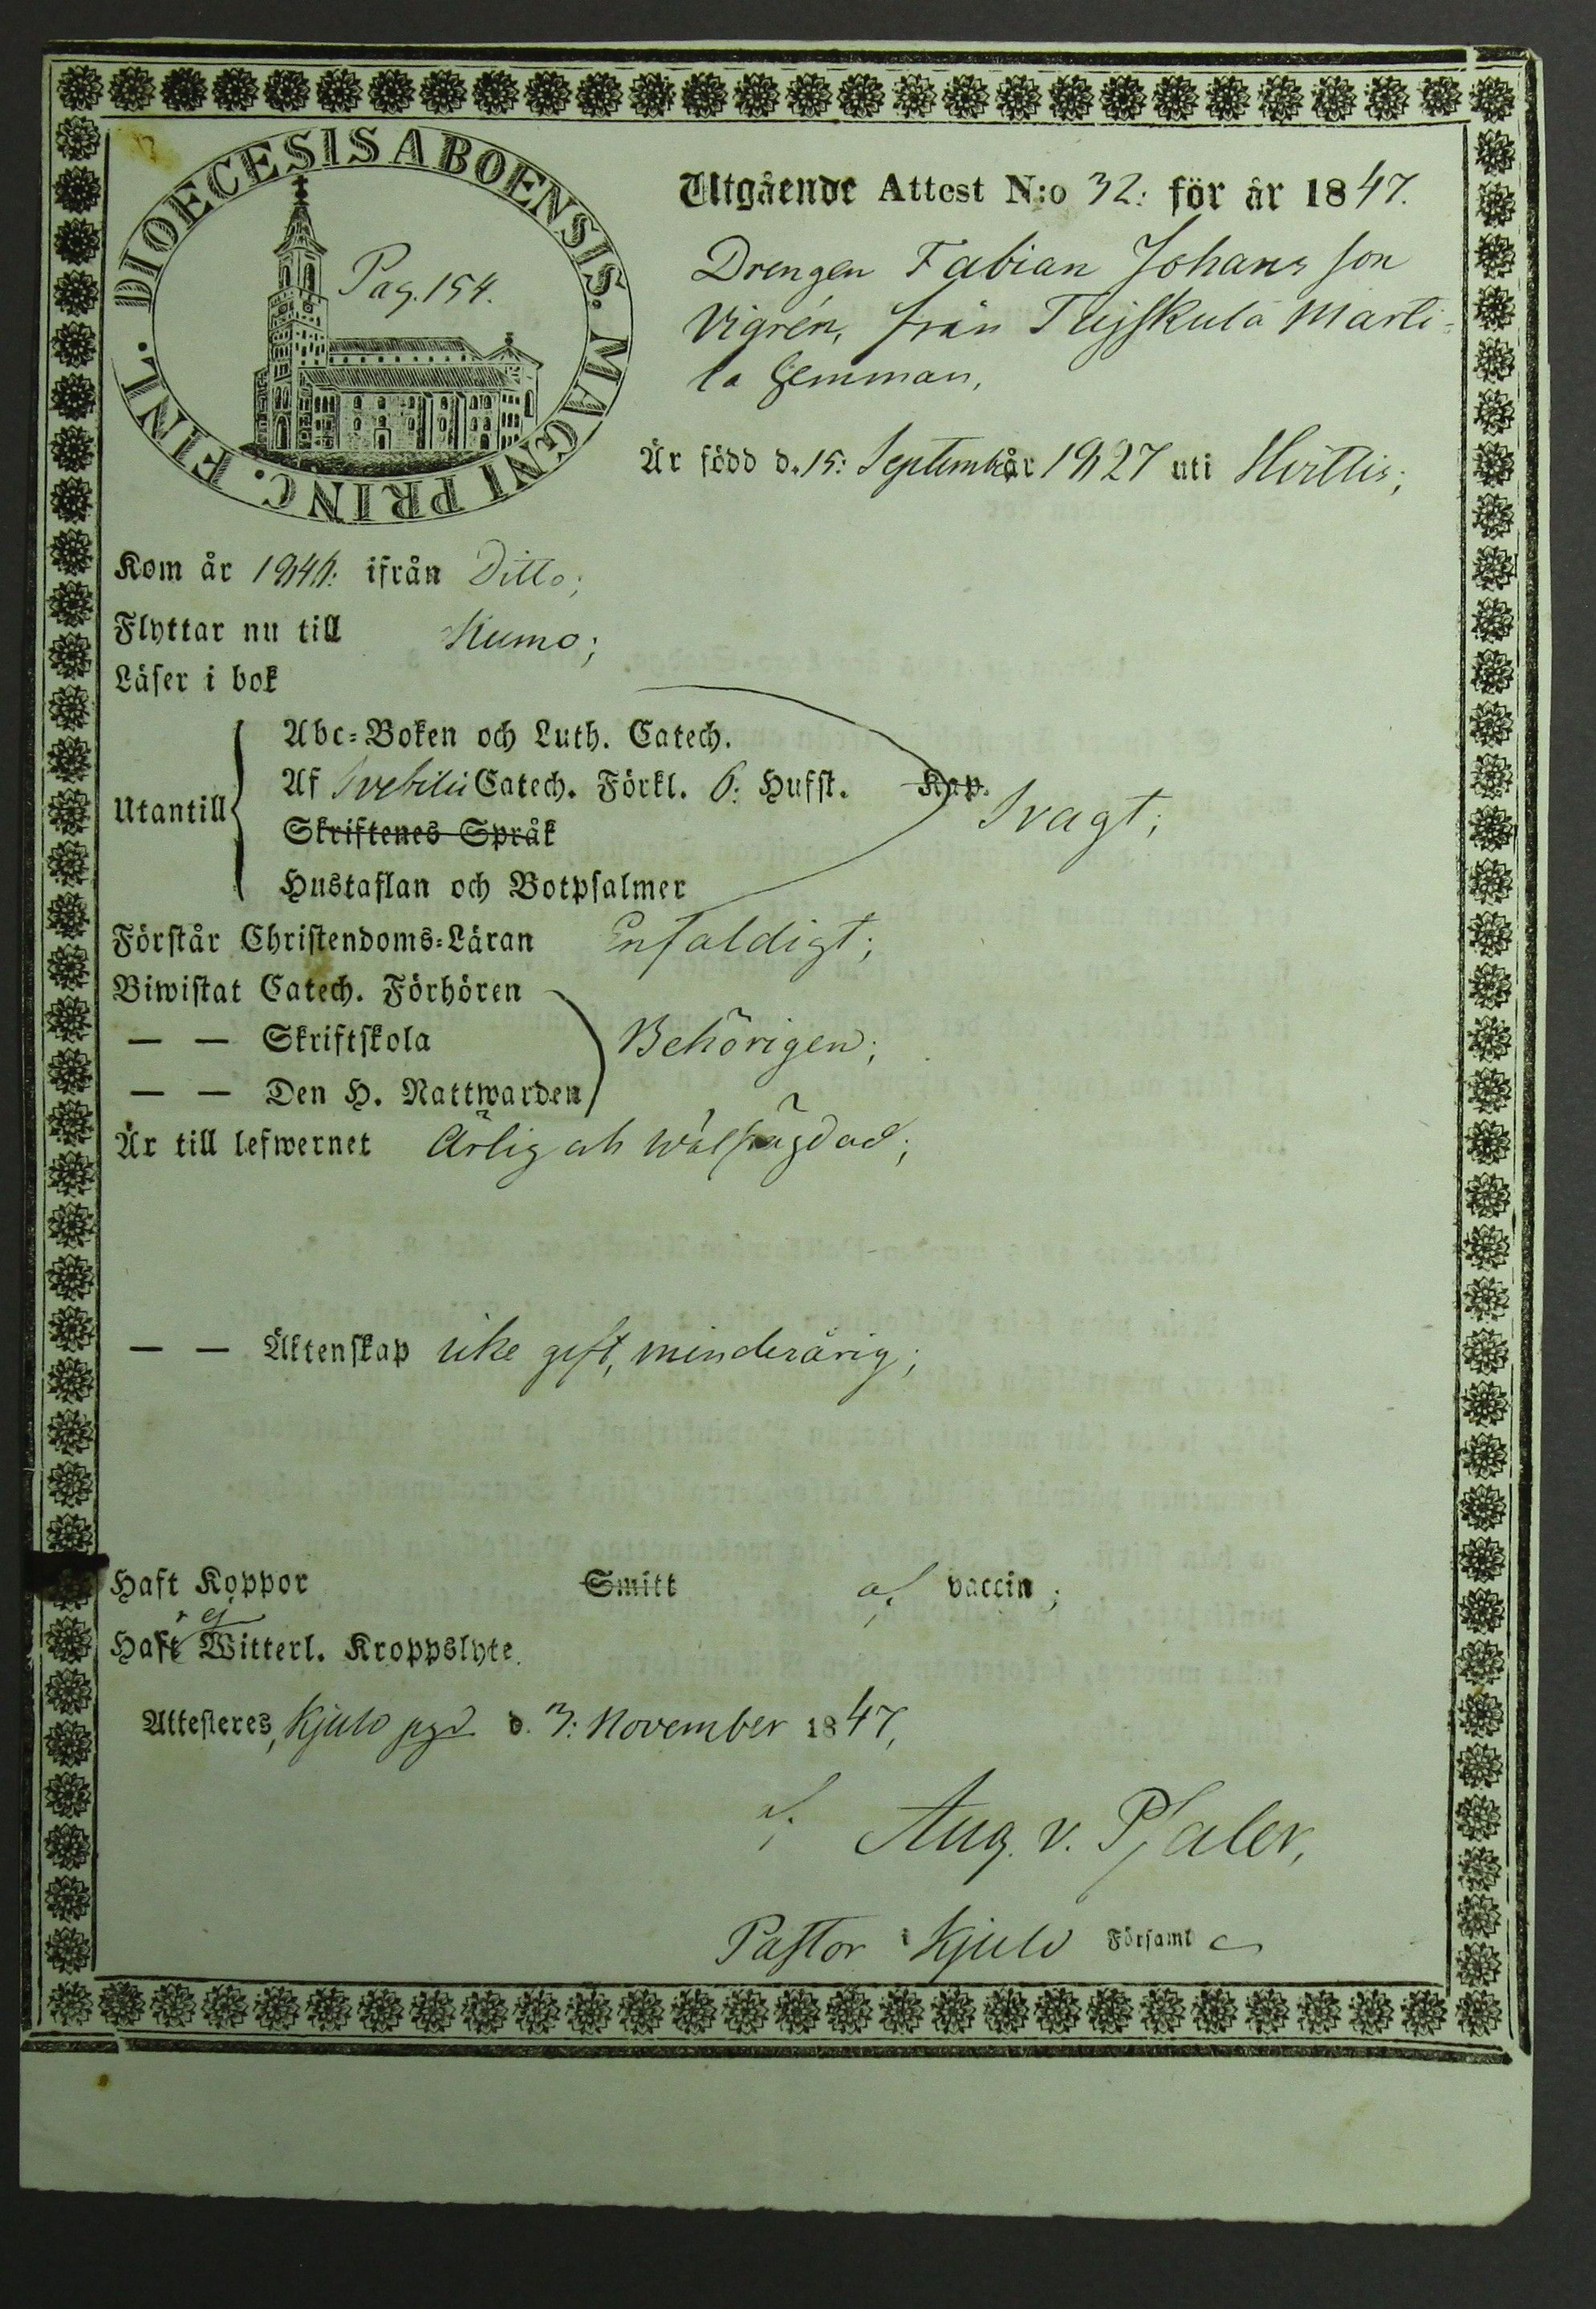 DIOECESIS ABOENSIS. MAGNI PRINC. FINL.
Pag. 154.
Utgående Attest N:o 32: för år 1847.
Drengen Fabian Johans son
Vigrén, från Tujskula Marti-
la hemman,
Är född d. 15: September år 1827 uti Hvittis;
Kom år 1844: ifrån Ditto;
Flyttar nu till Kumo;
Läser i bok
Utantill
Abc-Boken och Luth. Catech.
Af Svebilii Catech. Förkl. 6: Hufst. Kap.
Skriftenes Språk
Hustaflan och Botpsalmer
Svagt;
Förstår Christendoms-Läran Enfaldigt;
Biwistat Catech. Förhören
— — Skriftskola
— — Den H. Nattwarden
Behörigen;
Är till lefwernet Ärlig och wälfrägdad;
— — Äktenskap icke gift, minderårig;
Haft Koppor Smitt af vaccin;
ej
Haft Witterl. Kroppslyte.
Attesteres, Kjulo pgd d. 3: November 1847,
af Aug. v. Pfaler,
Pastor i Kjulo Församl